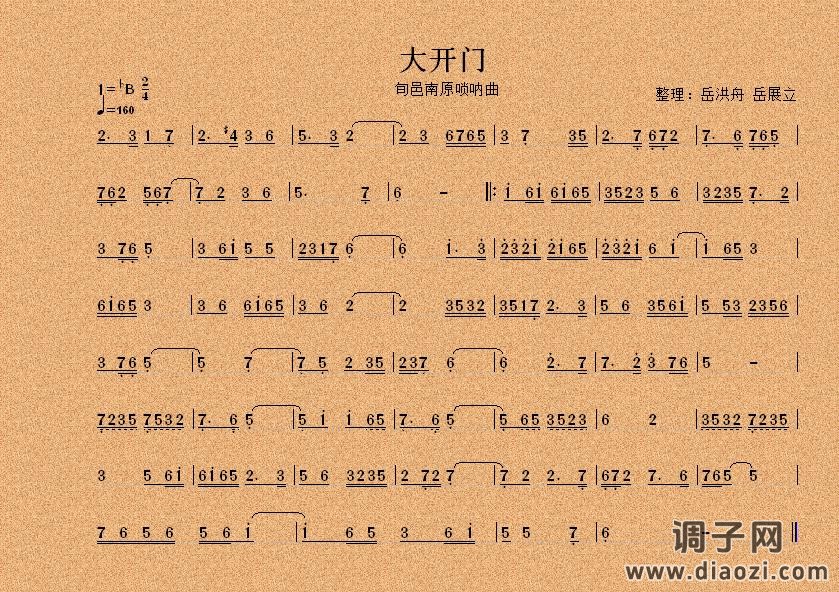 大开门
1=♭B 2/4
旬邑南原唢呐曲
整理：岳洪舟 岳展立
♩=160
2. 3 1 7 | 2. #4 3 6 | 5. 3 2 | 2 3 6765 | 3 7 35 | 2. 7 672 | 7. 6 765 |
762 567 | 7 2 3 6 | 5. 7 | 6 - ‖: i 6i 6i65 | 3523 5 6 | 3235 7. 2 |
3 76 5 | 3 6i 5 5 | 2317 6 | 6 i. 3 | 2321 2165 | 2321 6 i | i 65 3 |
6i65 3 | 3 6 6i65 | 3 6 2 | 2 3532 | 3517 2. 3 | 5 6 356i | 5 53 2356 |
3 76 5 | 5 7 | 7 5 2 35 | 237 6 | 6 2. 7 | 7. 2 3 76 | 5 - |
7235 7532 | 7. 6 5 | 5 i i 65 | 7. 6 5 | 5 65 3523 | 6 2 | 3532 7235 |
3 5 6i | 6i65 2. 3 | 5 6 3235 | 2 72 7 | 7 2 2. 7 | 672 7. 6 | 765 5 |
7 6 5 6 | 5 6 i | i 6 5 | 3 6 i | 5 5 7 | 6 - ‖
调子网
www.diaozi.com